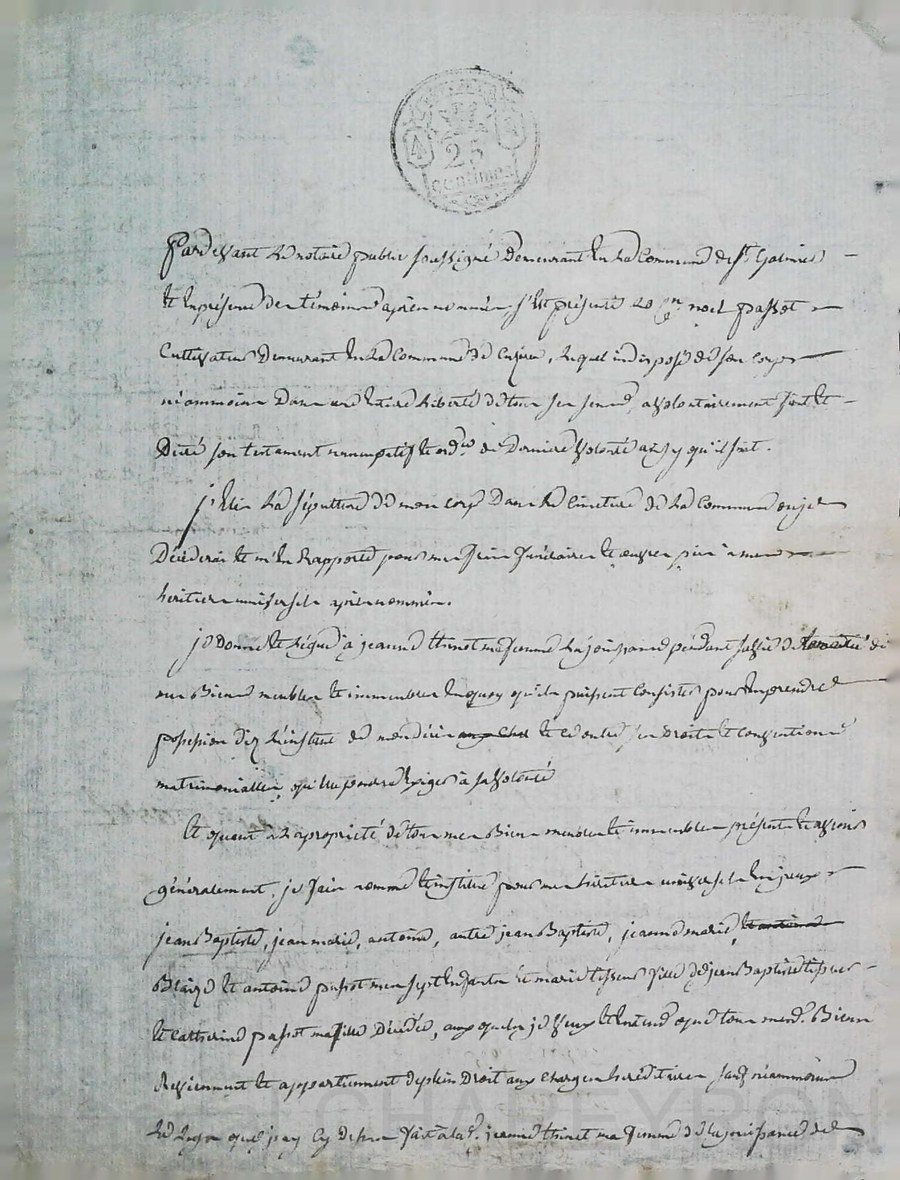 25
centimes
Pardevant le notaire public soussigné demeurant en la commune de St. Galmier
et en présence des témoins après nommés, s'est présenté le cen. noel passot
Cultivateur demeurant en la commune de, lequel indisposé de son corps
néammoins dans une entière liberté de tous ses sens, a volontairement fait et
Dicté son testament nuncupatif et ordce. de dernière volonté ainsy qu'il suit.
j'élis la sépulture de mon corps dans le cimetière de la commune ou je
Décederai et m'en Rapporte pour mes frais funéraires et œuvres pies à mes
heritiers universels après nommés.
je donne et lègue à jeanne thinet ma femme la jouissance pendant sa vie de la moitié de
mes Biens meubles et immeubles en quoy qu'ils puissent consister pour en prendre
possession dez l'instant de mon décès et ce outre ses droits et conventions
matrimoniales qu'elle poudra exiger à sa volonté
Et quant à la propriété de tous mes Biens meubles et immeubles présents et avenir
généralement, je fais nomme et institue pour mes héritiers universels en jceux
jean Baptiste, jean marie, antoine, autre jean Baptiste, jeanne marie,
Blaize et antoine passot mes sept enfants et marie tisseur fille de jean Baptiste tisseur
et Catherine passot ma fille Décédée, aux quels je veux et entend que tous mesd. Biens
Reviennent et appartiennent de plein Droit aux charges héréditaires sauf néammoins
le legs que j'ay cy dessus fait à lad. jeanne thinet ma femme de la jouissance de
CHAREYRON